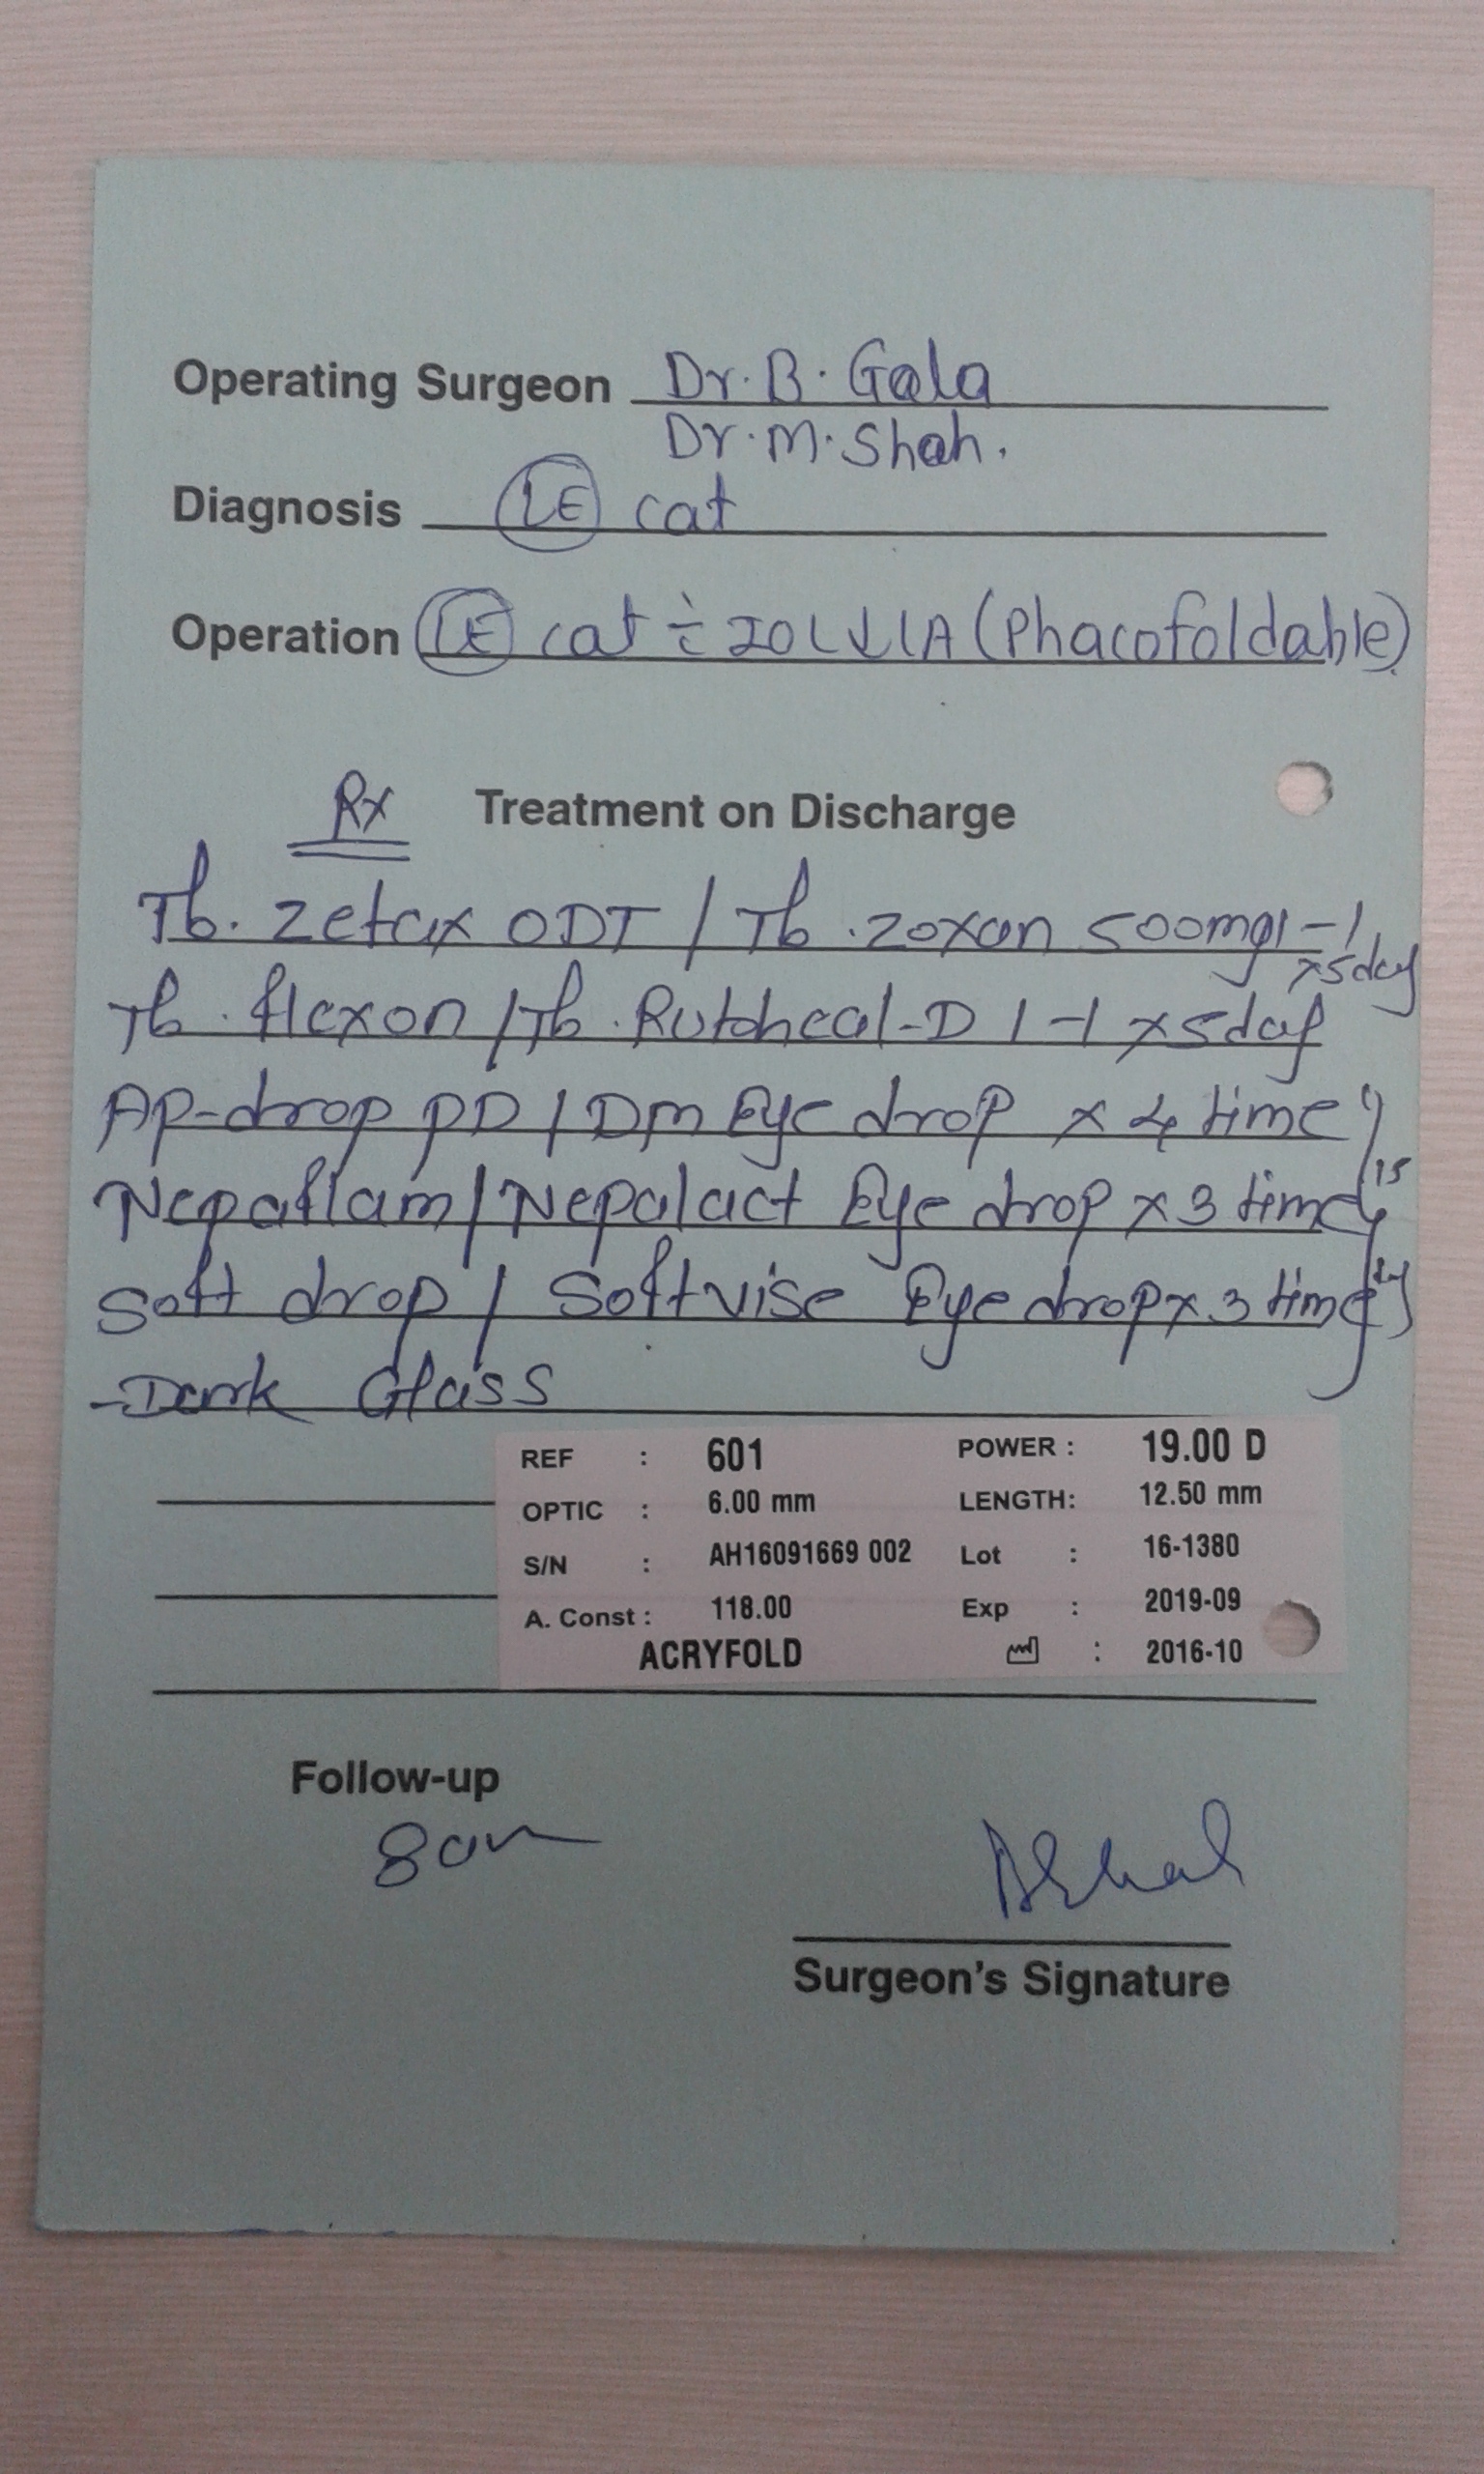 Operating Surgeon Dr. B. Gala
Dr. M. Shah.
Diagnosis LE cat
Operation LE cat c̄ IOL ↓ LA (Phacofoldable)
Rx Treatment on Discharge
Tb. Zetax ODT / Tb. Zoxan 500mg 1-1
x5day
Tb. flexon / Tb. Rutoheal-D 1-1 x5day
AP-drop PD / Dm Eye drop x 4 time
Nepaflam / Nepalact Eye drop x 3 time
15
Soft drop / Softvise Eye drop x 3 time
-Dark Glass
REF : 601 POWER : 19.00 D
OPTIC : 6.00 mm LENGTH: 12.50 mm
S/N : AH16091669 002 Lot : 16-1380
A. Const : 118.00 Exp : 2019-09
ACRYFOLD : 2016-10
Follow-up
Surgeon's Signature